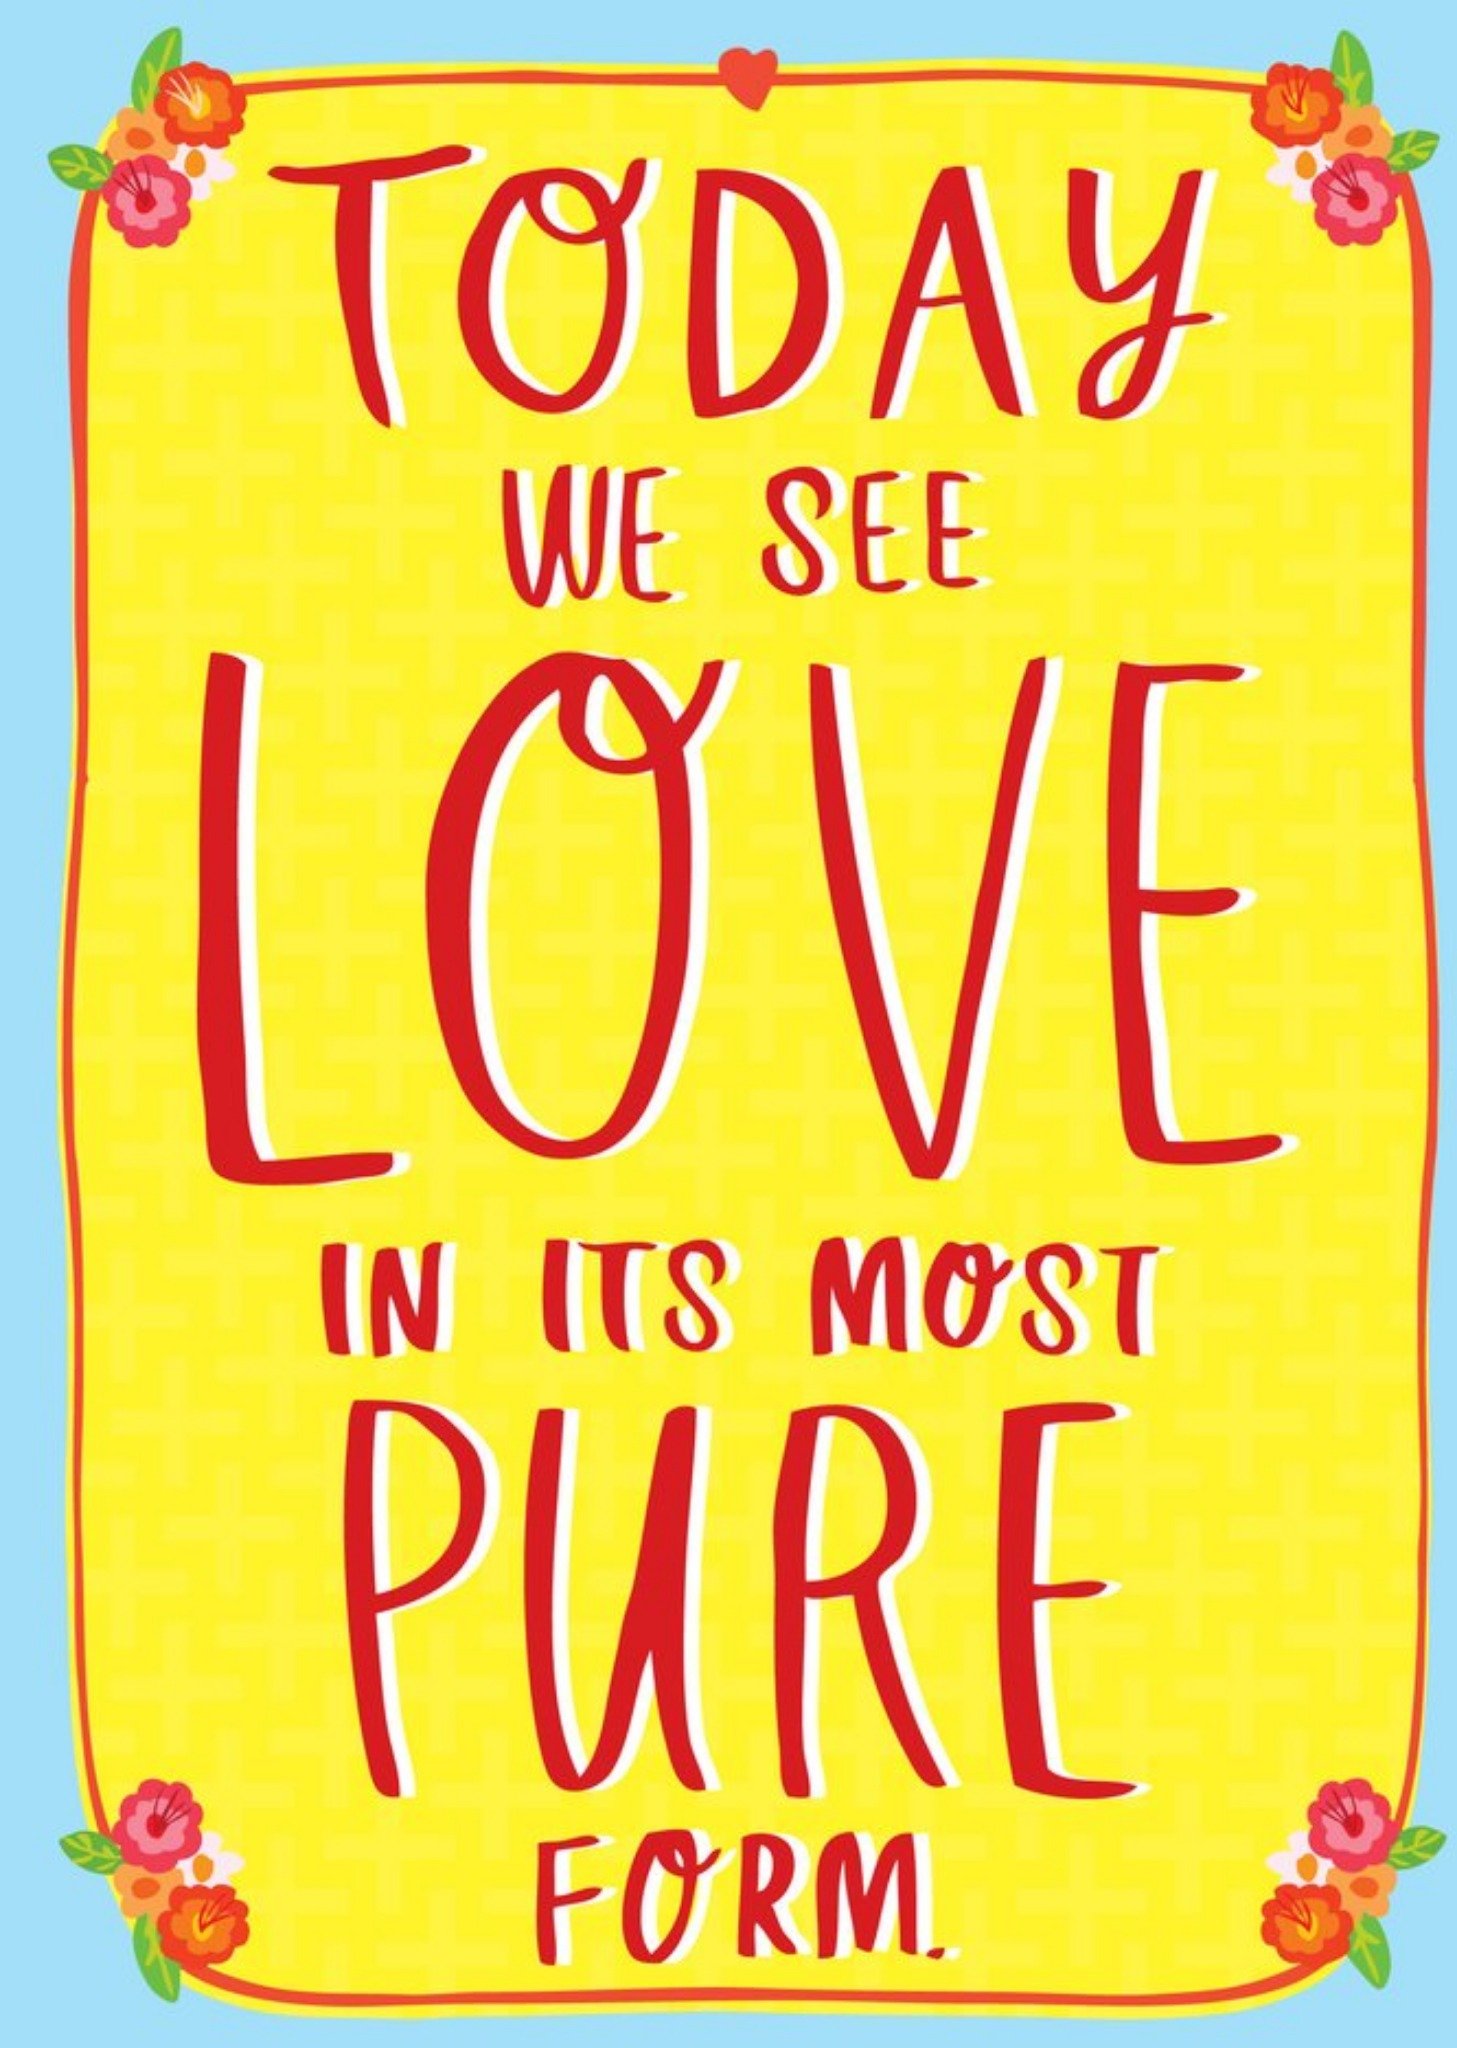 TODAY
WE SEE
LOVE
IN ITS MOST
PURE
FORM.